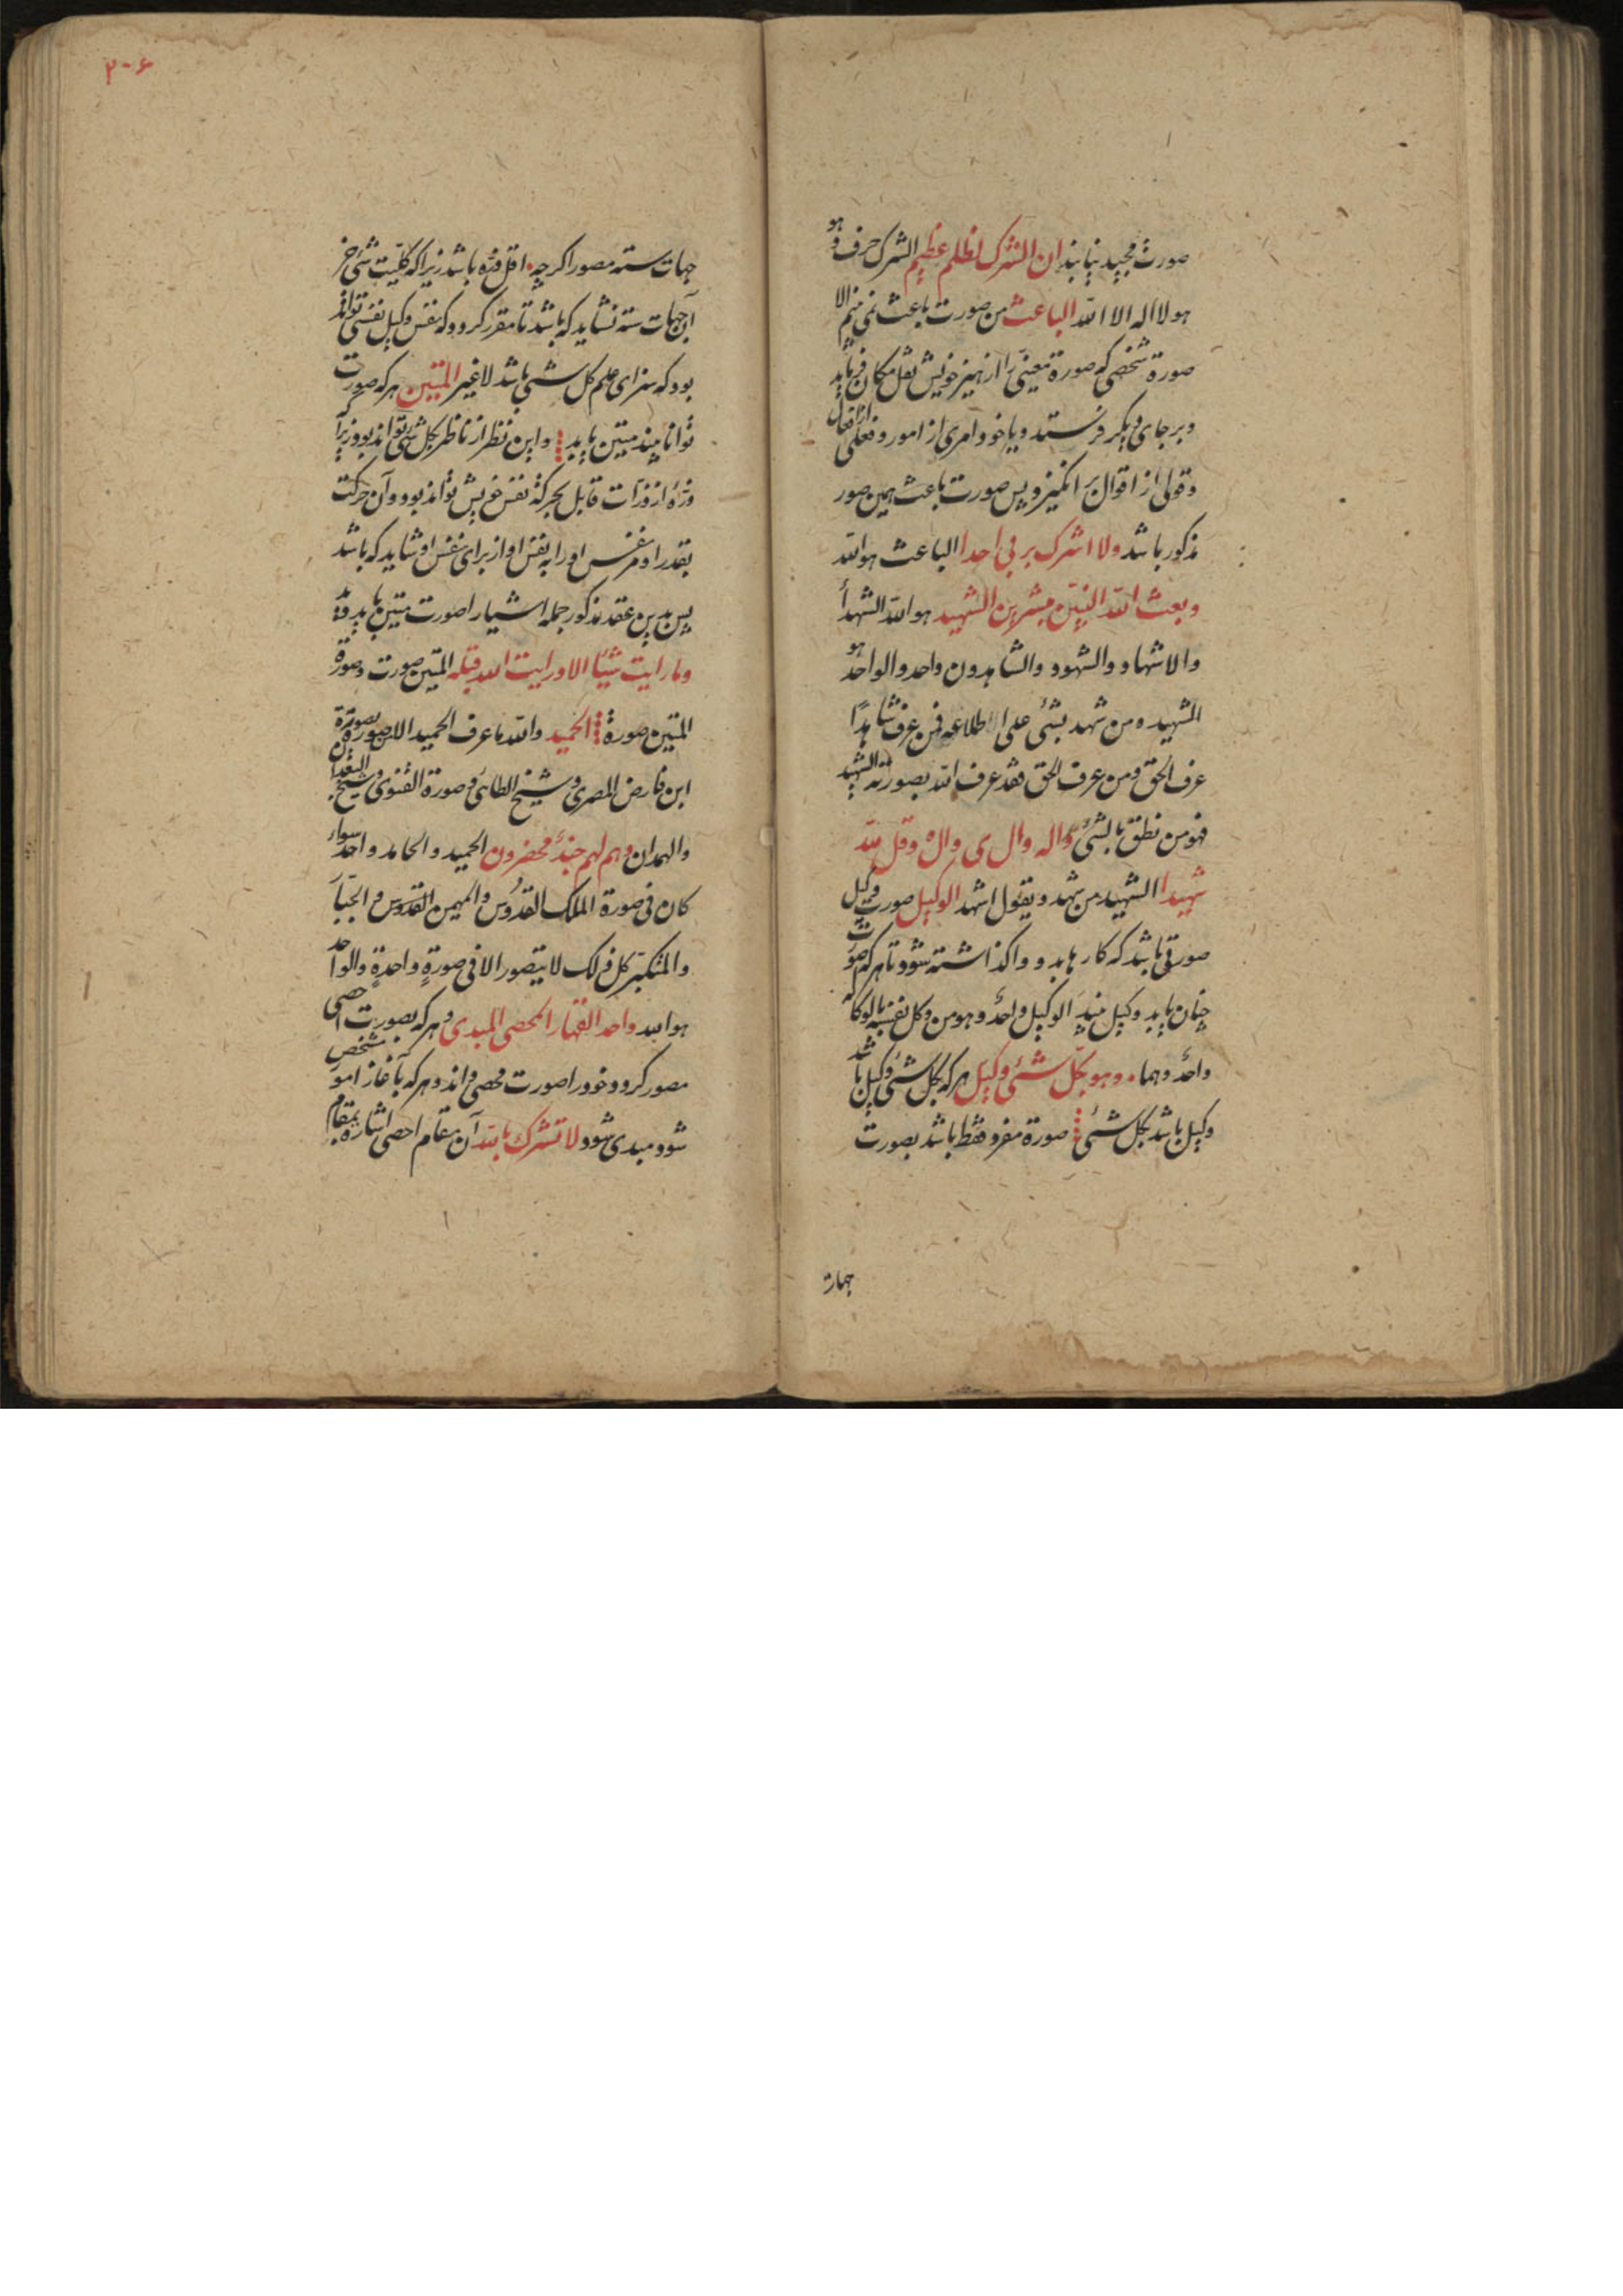 صورت مجید نیابند ان الشرک لظلم عظیم الشرک حرف و هو
هو لا اله الا الله الباعث من صورت باعث نمی بینم الا
صورة شخصی که صورة معینی را از حیز خویش نقل مکان فرماید
و بر جای دیگر فرستد و یا خود امری از امور و فعلی از افعال
و قولی از اقوال بر انگیزد پس صورت باعث همین صور
مذکور باشد ولا اشرک بربی احدا الباعث هو الله
وبعث الله النبین مبشرین الشهید هو الله الشهدأ
والاشهاد والشهود والشاهدون واحد والواحد هو
الشهید ومن شهد بشئ علی اطلاعه فمن عرف شاهدًا
عرف الحق ومن عرف الحق فقد عرف الله بصورته الشهید
فهو من نطق بالشئ وقل لله
شهیدا الشهید من شهد ویقول اشهد الوکیل صورت وکیل
صورتی باشد که کار باید و واکذاشته شود تا هر که صورت
چنان یابد وکیل بیند الوکیل واحد وهو من وکل نفسه بالوکاله
واحد وهما وهو بکل شئ وکیل هر که بکل شئ وکیل باشد
وکیل باشد بکل شئ صورة مفرد فقط باشد بصورت
جهات
۲۰۶
جهات سته مصور اکر چه اقل ذره باشد زیرا که کلیت شئ جز
آن جهات سته نشاید که باشد تا مقرر کردد که نفس وکیل نفسی تواند
بود که سزای علم کل شئ باشد لا غیر المتین هر که صورت
توانا بیند متین یابد و این نظر از ناظر بکل شئ تواند بود زیرا که
ذرهٔ از ذرات قابل بحرکة نفس خویش تواند بود و آن حرکت
بقدر او مر نفس او را به نفس او از برای نفس او شاید که باشد
پس بدین عقد مذکور جمله اشیا را صورت متین یابد
وما رایت شیئا الا ورایت الله قبله المتین صورت وصورة
المتین صورة الحمید والله ما عرف الحمید الا بصورة
ابن فارض المصری وشیخ الطائی وصورة القنوی وشیخ البغدا
والهمدان وهم لهم جندٌ محضرون الحمید والحامد واحد سواء
کان فی صورة الملک القدّوس والمهیمن القدوس والجبّار
والمتکبّر کل ذلک لا یتصور الا فی صورةٍ واحدةٍ والواحد
هو الله واحد القهار المحصی المبدی و هر که بصورت احصی
مصور کردد خود را صورت محصی داند و هر که بآغاز امو
شود مبدی شود لا تشرک بالله آن مقام احصی اشارة بمقام